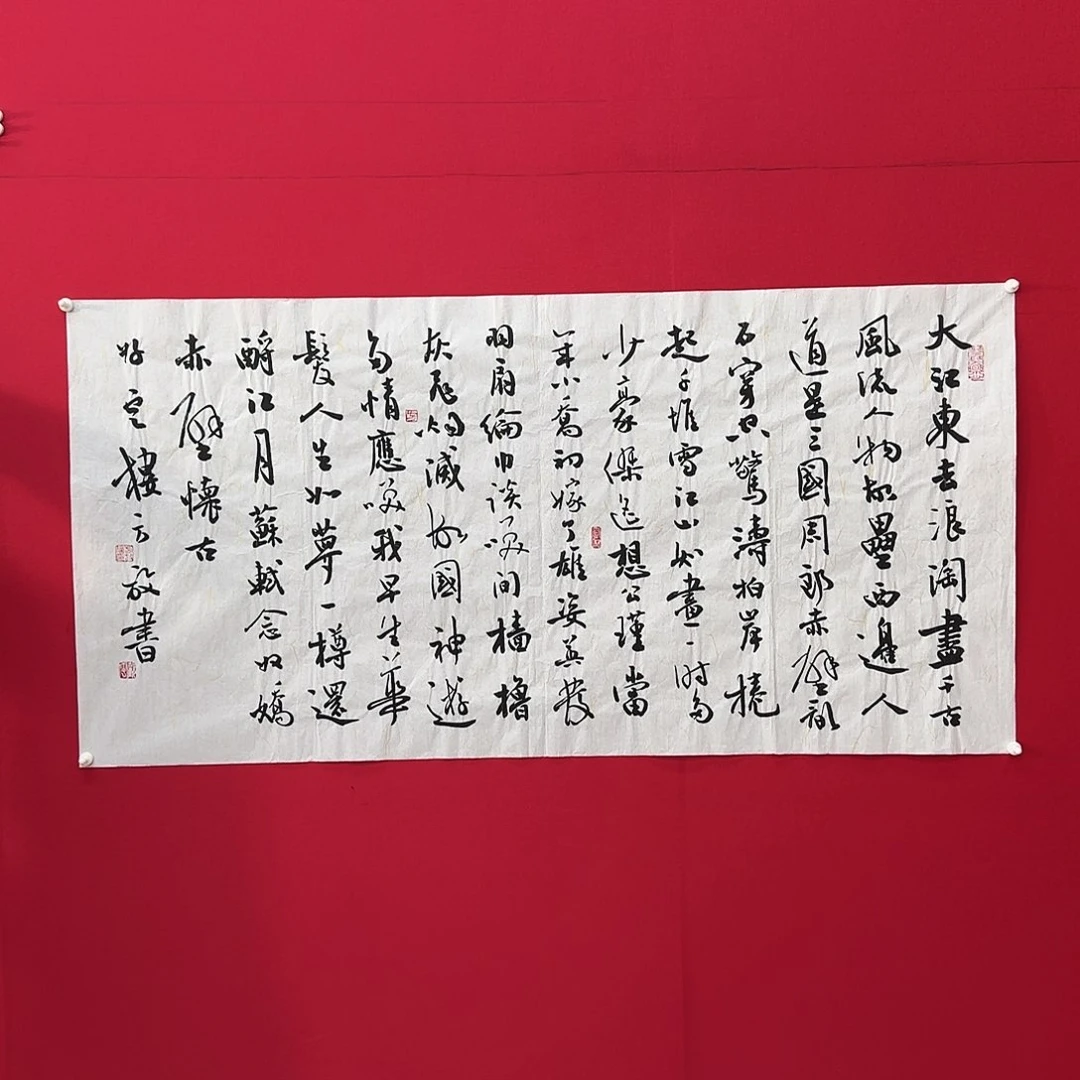 大江東去浪淘盡千古
風流人物故壘西邊人
道是三國周郎赤壁亂
石穿空驚濤拍岸捲
起千堆雪江山如畫一時多
少豪傑遙想公瑾當
年小喬初嫁了雄姿英發
羽扇綸巾談笑間檣櫓
灰飛烟滅故國神遊
多情應笑我早生華
髮人生如夢一樽還
酹江月蘇軾念奴嬌
赤壁懷古
樓方放書